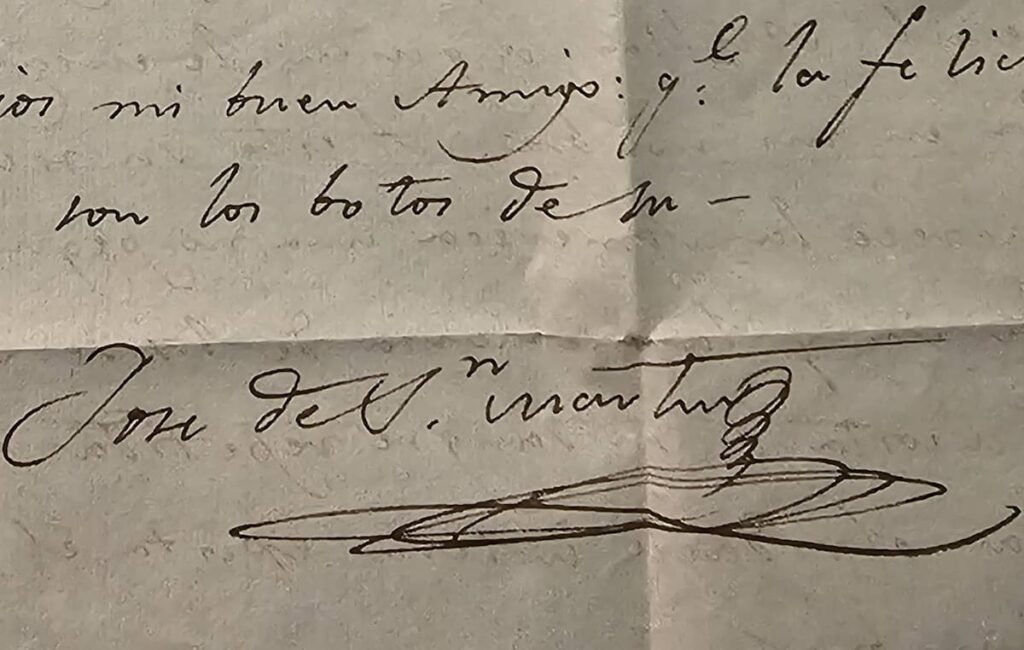 ios mi buen Amigo: q.e la felic
son los botos de su –
Jose de S.n Martin